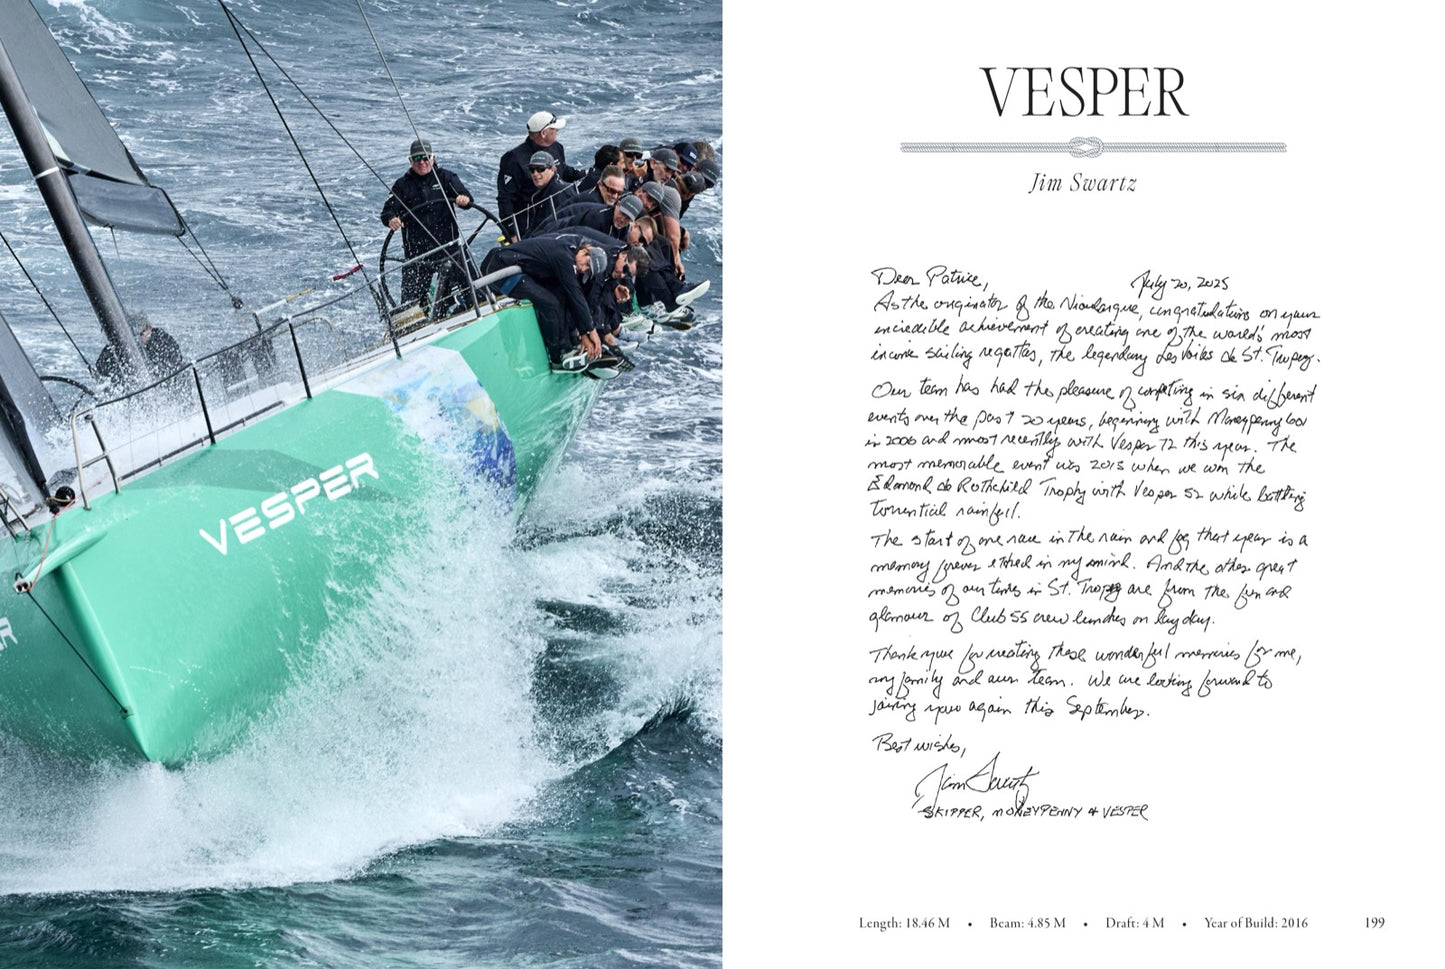 VESPER
R
VESPER
Jim Swartz
Dear Patrice, July 20, 2025
As the originator of the Nioulargue, congratulations on your
incredible achievement of creating one of the world's most
iconic sailing regattas, the legendary Les Voiles de St. Tropez.
Our team has had the pleasure of competing in six different
events over the past 20 years, beginning with Moneypenny
in 2006 and most recently with Vesper 72 this year. The
most memorable event was 2015 when we won the
Edmond de Rothchild Trophy with Vesper 52 while battling
torrential rainfall.
The start of one race in the rain and fog that year is a
memory forever etched in my mind. And the other great
memories of our times in St. Tropez are from the fun and
glamour of Club 55 crew lunches on lay day.
Thank you for creating these wonderful memories for me,
my family and our team. We are looking forward to
joining you again this September.
Best wishes,
Jim Swartz
SKIPPER, MONEYPENNY & VESPER
Length: 18.46 M • Beam: 4.85 M • Draft: 4 M • Year of Build: 2016 199